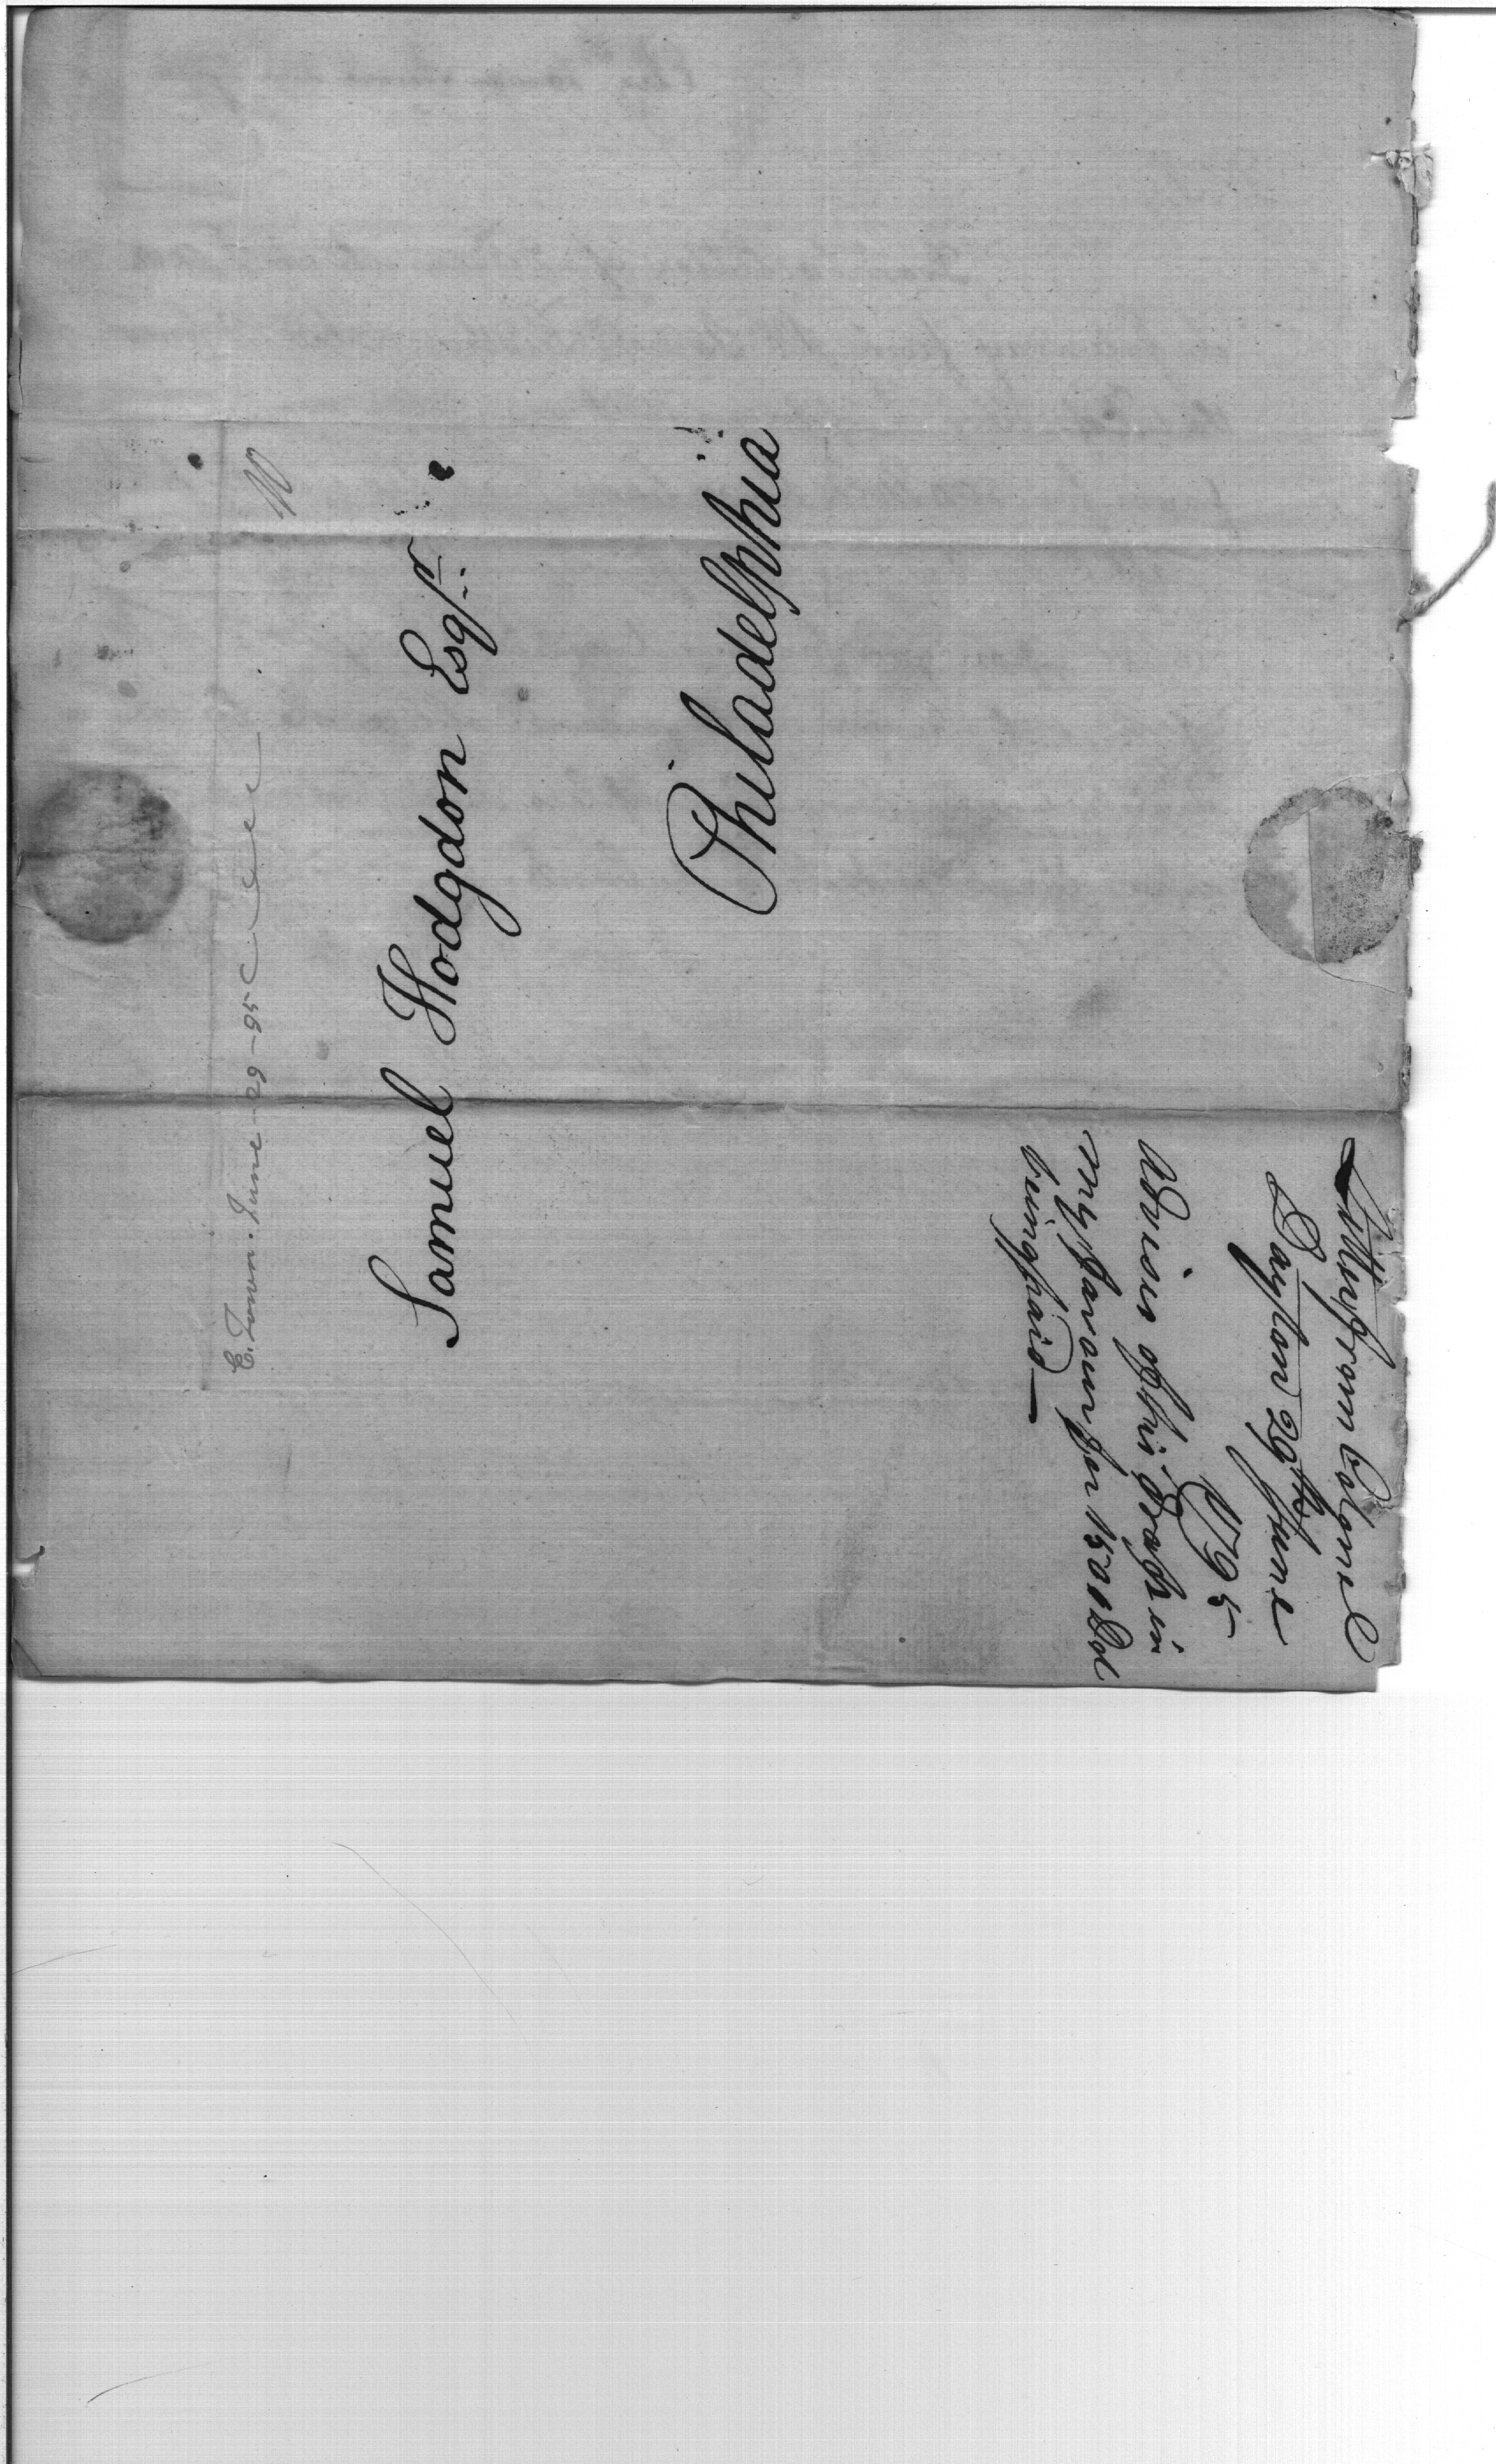 E. Town. June - 29 - 95
10
Samuel Hodgdon Esqr.
Philadelphia
Letter from Colonel
Dayton 29th June
1795
Advice of his Draft in
my favour for 1501 Dol
being paid —